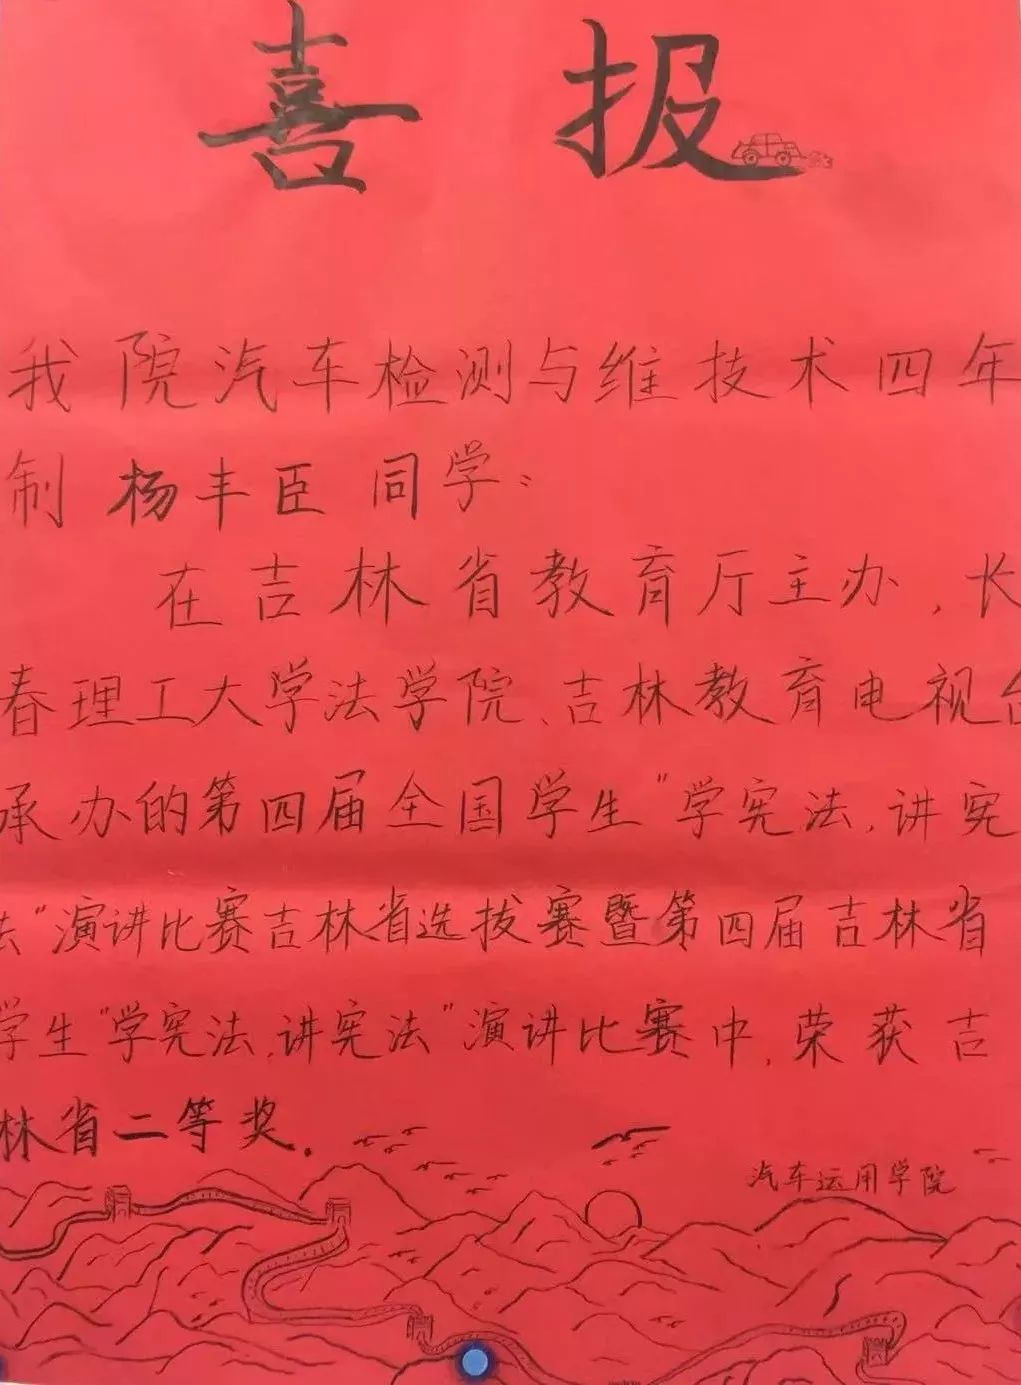 喜报
我院汽车检测与维技术四年
制杨丰臣同学:
在吉林省教育厅主办,长
春理工大学法学院、吉林教育电视台
承办的第四届全国学生"学宪法,讲宪
法"演讲比赛吉林省选拔赛暨第四届吉林省
学生"学宪法,讲宪法"演讲比赛中,荣获吉
林省二等奖.
汽车运用学院